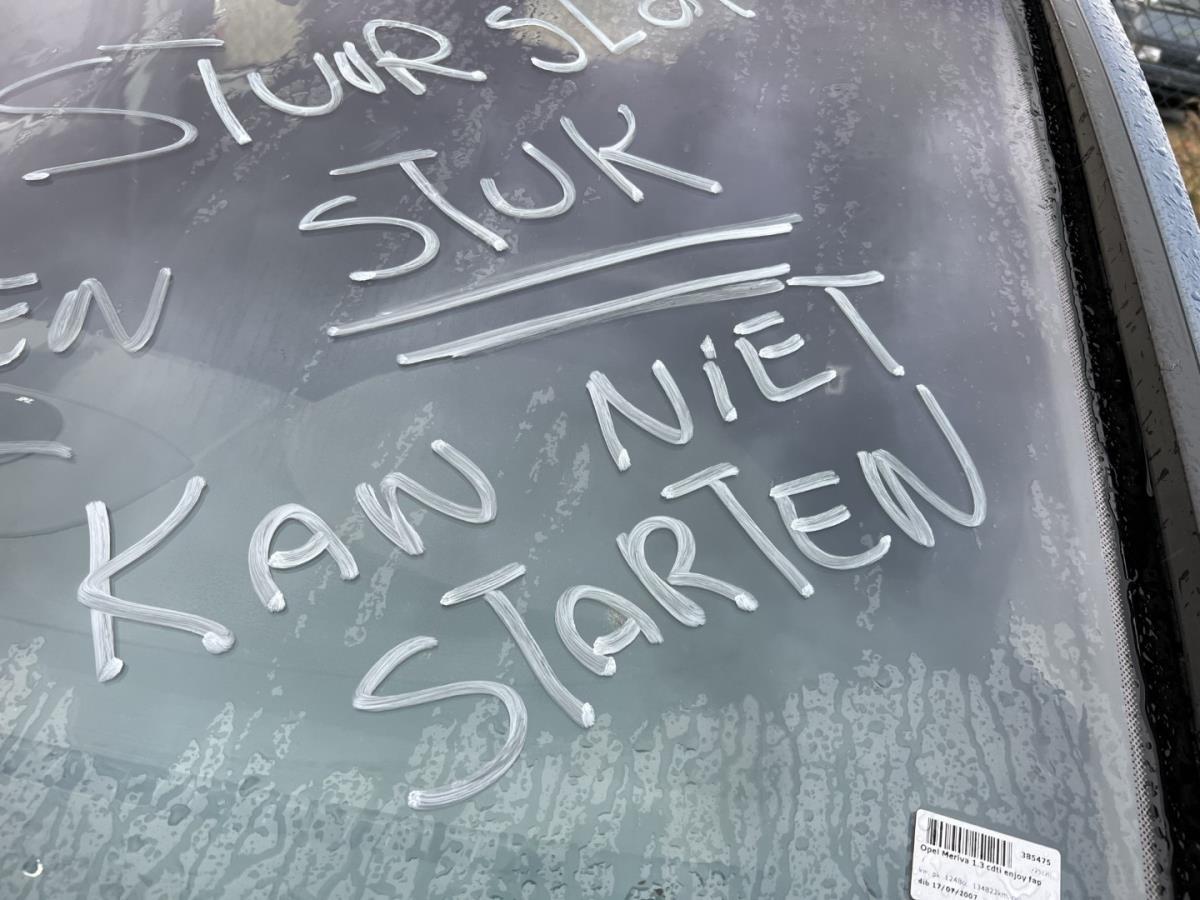 STUUR SLOT
STUK
EN
KAN NIET
STARTEN
385475
Opel Meriva 1.3 cdti enjoy fap
dib 17/09/2007